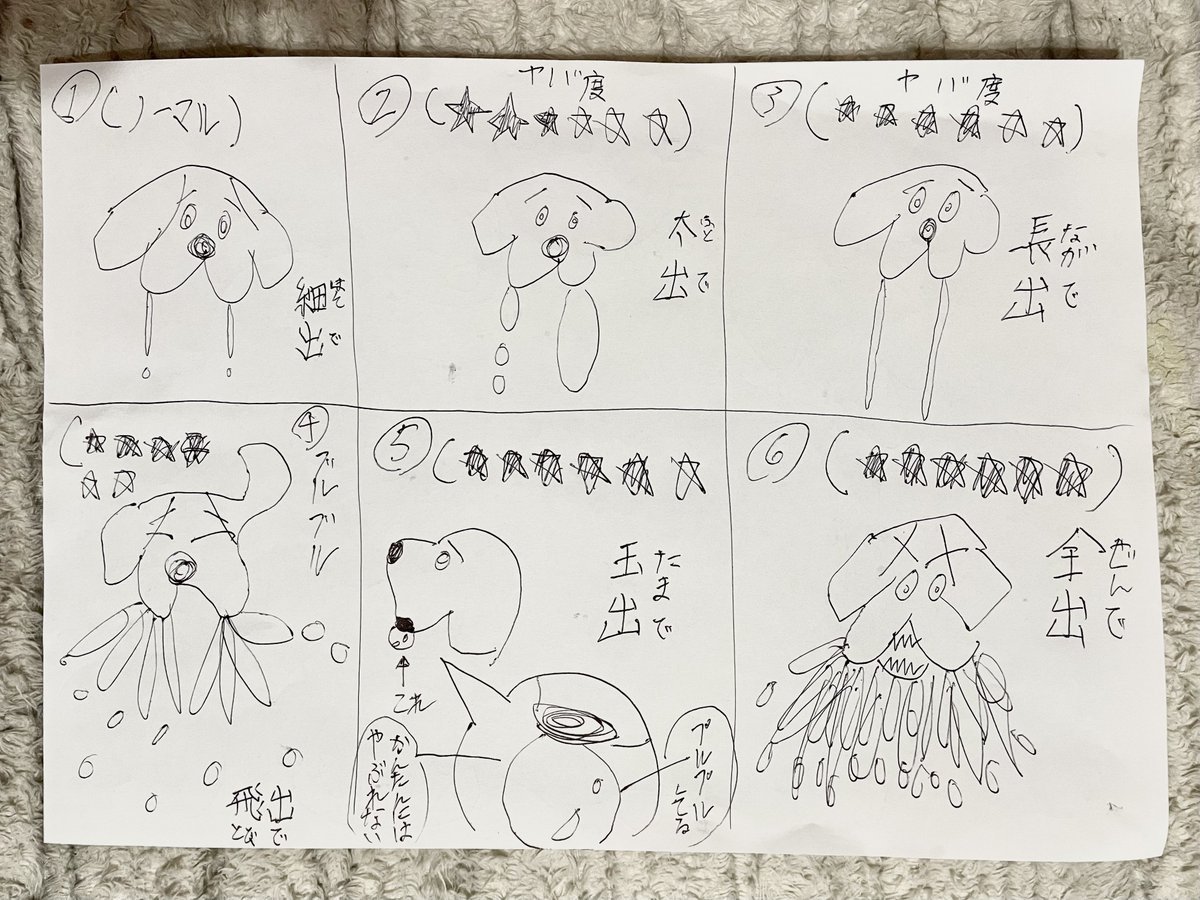 ① (ノーマル)
細出
ほそで
② ヤバ度
(★★★☆☆☆)
太出
ふとで
③ ヤバ度
(★★★★☆☆)
長出
ながで
④
(★★★★
☆☆
ブルブル
飛出
とびで
⑤ (★★★★★☆)
玉出
たまで
これ
かんたんには
やぶれない
プルプル
してる
⑥ (★★★★★★)
全出
ぜんで